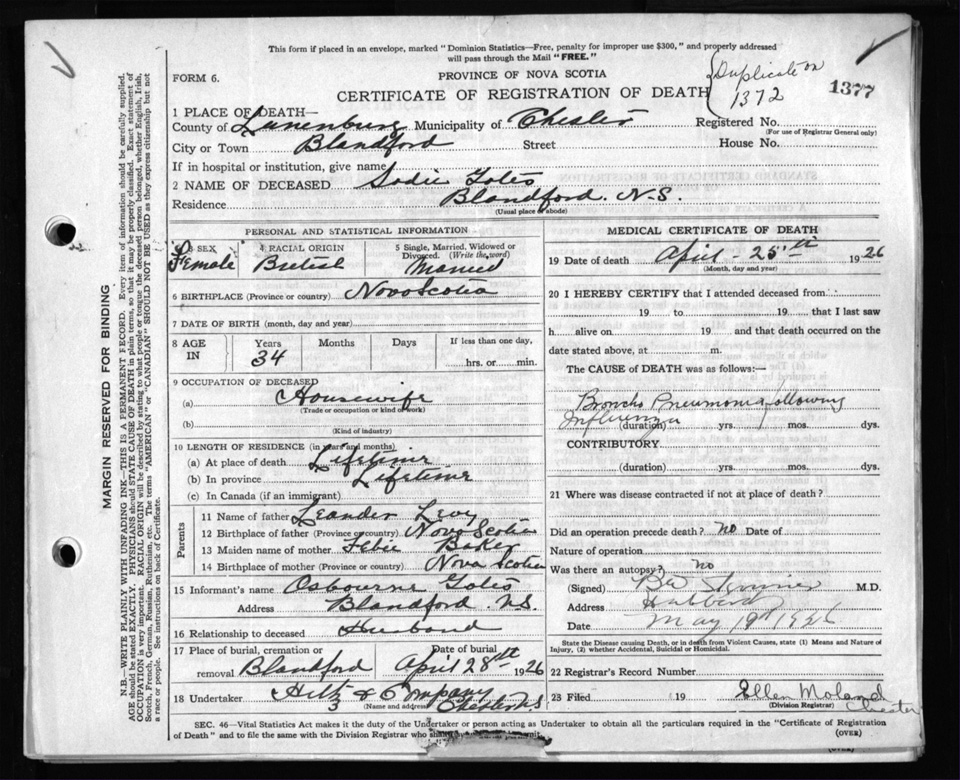 This form if placed in an envelope, marked "Dominion Statistics—Free, penalty for improper use $300," and properly addressed
will pass through the Mail "FREE."
FORM 6.
PROVINCE OF NOVA SCOTIA
CERTIFICATE OF REGISTRATION OF DEATH
Duplicate on
1372
1377
1 PLACE OF DEATH—
County of Lunenburg Municipality of Chester Registered No.
(For use of Registrar General only)
City or Town Blandford Street House No.
If in hospital or institution, give name
2 NAME OF DECEASED Sadie
Residence Blandford. N.S.
(Usual place of abode)
PERSONAL AND STATISTICAL INFORMATION
3 SEX Female
4 RACIAL ORIGIN British
5 Single, Married, Widowed or Divorced. (Write the word) Married
6 BIRTHPLACE (Province or country) Nova Scotia
7 DATE OF BIRTH (month, day and year)
8 AGE IN Years Months Days If less than one day,
34 hrs. or min.
9 OCCUPATION OF DECEASED
(a) Housewife
(Trade or occupation or kind of work)
(b)
(Kind of industry)
10 LENGTH OF RESIDENCE (in years and months)
(a) At place of death Lifetime
(b) In province Lifetime
(c) In Canada (if an immigrant)
Parents
11 Name of father Leander Levy
12 Birthplace of father (Province or country) Nova Scotia
13 Maiden name of mother Baker
14 Birthplace of mother (Province or country) Nova Scotia
15 Informant's name Osbourne
Address Blandford N.S.
16 Relationship to deceased Husband
17 Place of burial, cremation or removal Blandford Date of burial April 28th 1926
18 Undertaker Hiltz & Company
(Name and address) Chester N.S
MEDICAL CERTIFICATE OF DEATH
19 Date of death April - 25th 1926
(Month, day and year)
20 I HEREBY CERTIFY that I attended deceased from
19 to 19 that I last saw
h alive on 19 and that death occurred on the
date stated above, at m.
The CAUSE of DEATH was as follows:—
Broncho Pneumonia following
Influenza
(duration) yrs. mos. dys.
CONTRIBUTORY
(duration) yrs. mos. dys.
21 Where was disease contracted if not at place of death?
Did an operation precede death? no Date of
Nature of operation
Was there an autopsy? no
(Signed) M.D.
Address Hubbards
Date May 19th 1926
State the Disease causing Death, or in death from Violent Causes, state (1) Means and Nature of
Injury, (2) whether Accidental, Suicidal or Homicidal.
22 Registrar's Record Number
23 Filed 19 Ellen
(Division Registrar) Chester
SEC. 46—Vital Statistics Act makes it the duty of the Undertaker or person acting as Undertaker to obtain all the particulars required in the "Certificate of Registration
of Death" and to file the same with the Division Registrar who
(OVER)
(OVER)
MARGIN RESERVED FOR BINDING
N.B.—WRITE PLAINLY WITH UNFADING INK—THIS IS A PERMANENT RECORD. Every item of information should be carefully supplied.
AGE should be stated EXACTLY. PHYSICIANS should STATE CAUSE OF DEATH in plain terms, so that it may be properly classified. Exact statement of
OCCUPATION is very important. RACIAL ORIGIN will be described by stating to what people or tongue the deceased person belonged, whether English, Irish,
Scotch, French, German, Russian, Ruthenian, etc. The terms "AMERICAN" or "CANADIAN" SHOULD NOT BE USED as they express citizenship but not
a race or people. See instructions on back of Certificate.